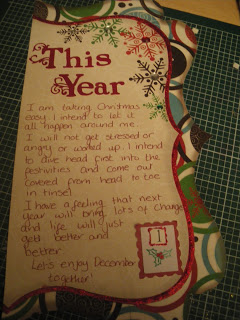 This
Year
I am taking Christmas
easy I intend to let it
all happen around me.
I will not get stressed or
angry or worked up. I intend
to dive head first into the
festivities and come out
covered from head to toe
in tinsel
I have a feeling that next
year will bring lots of change
and life will just
get better and
better.
Let's enjoy December
together!
1